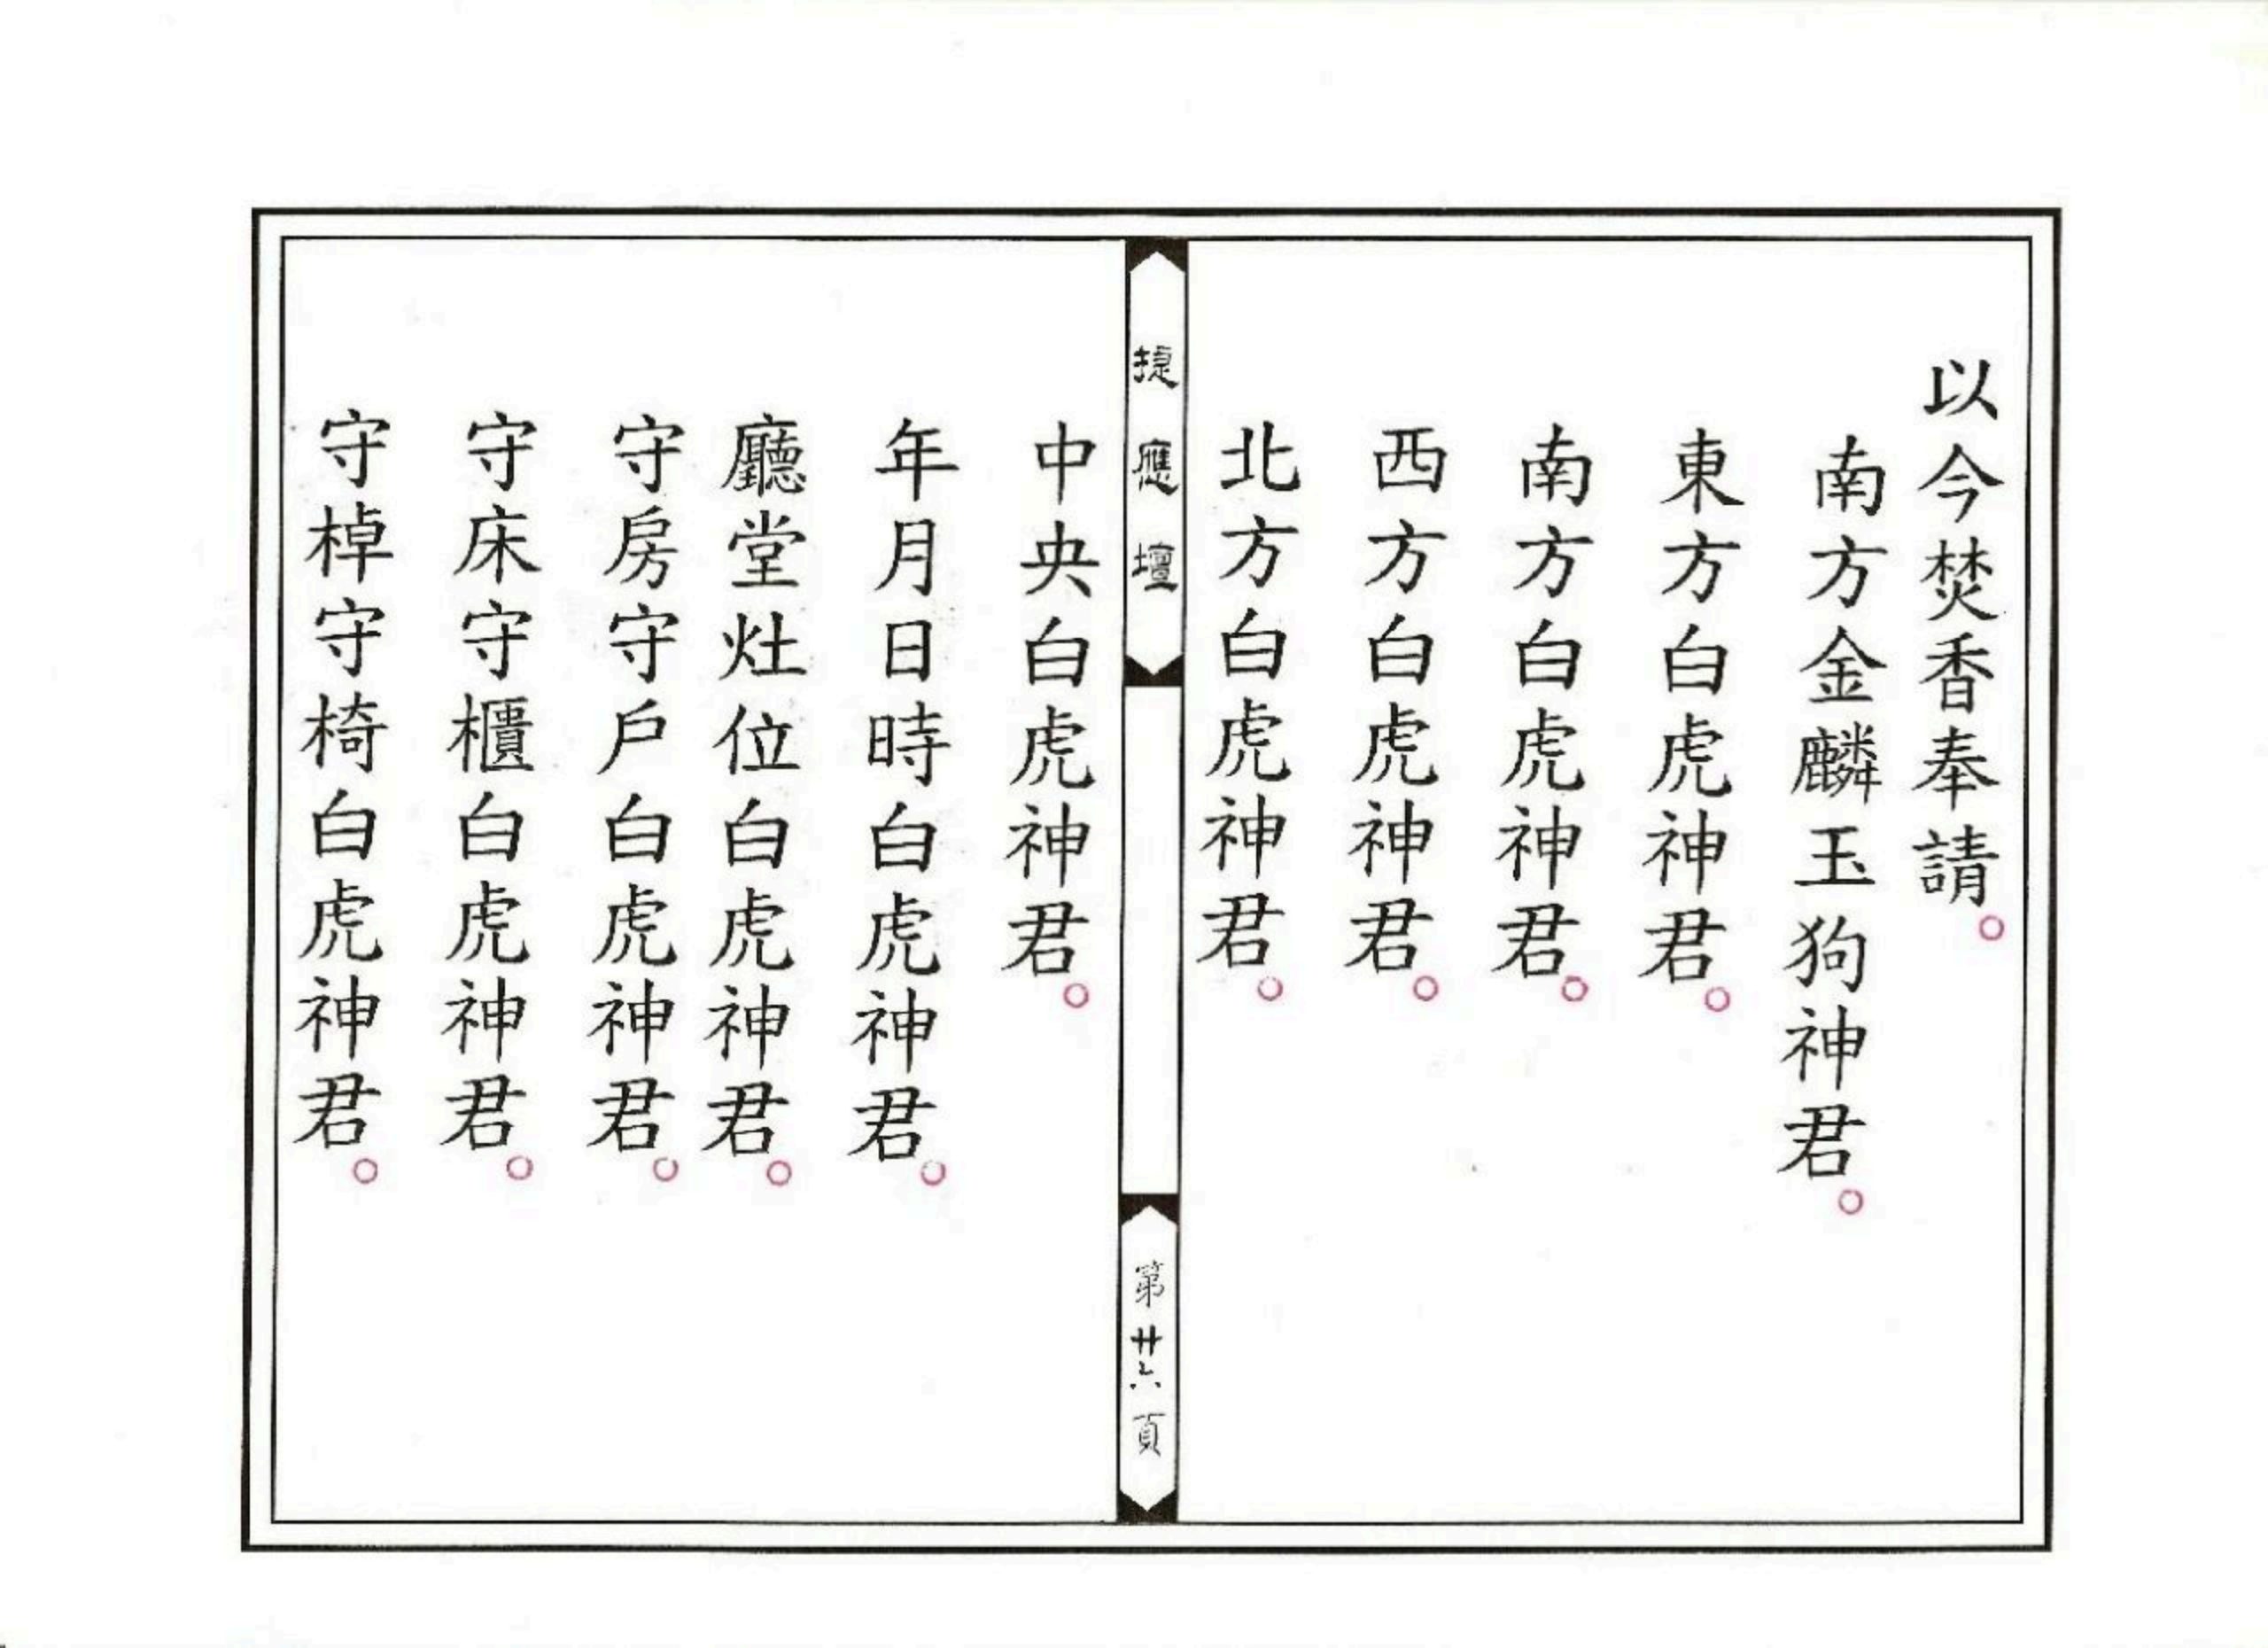 以今焚香奉請。
南方金麟玉狗神君。
東方白虎神君。
南方白虎神君。
西方白虎神君。
北方白虎神君。
捷應壇
第廿六頁
中央白虎神君。
年月日時白虎神君。
廳堂灶位白虎神君。
守房守戶白虎神君。
守床守櫃白虎神君。
守棹守椅白虎神君。